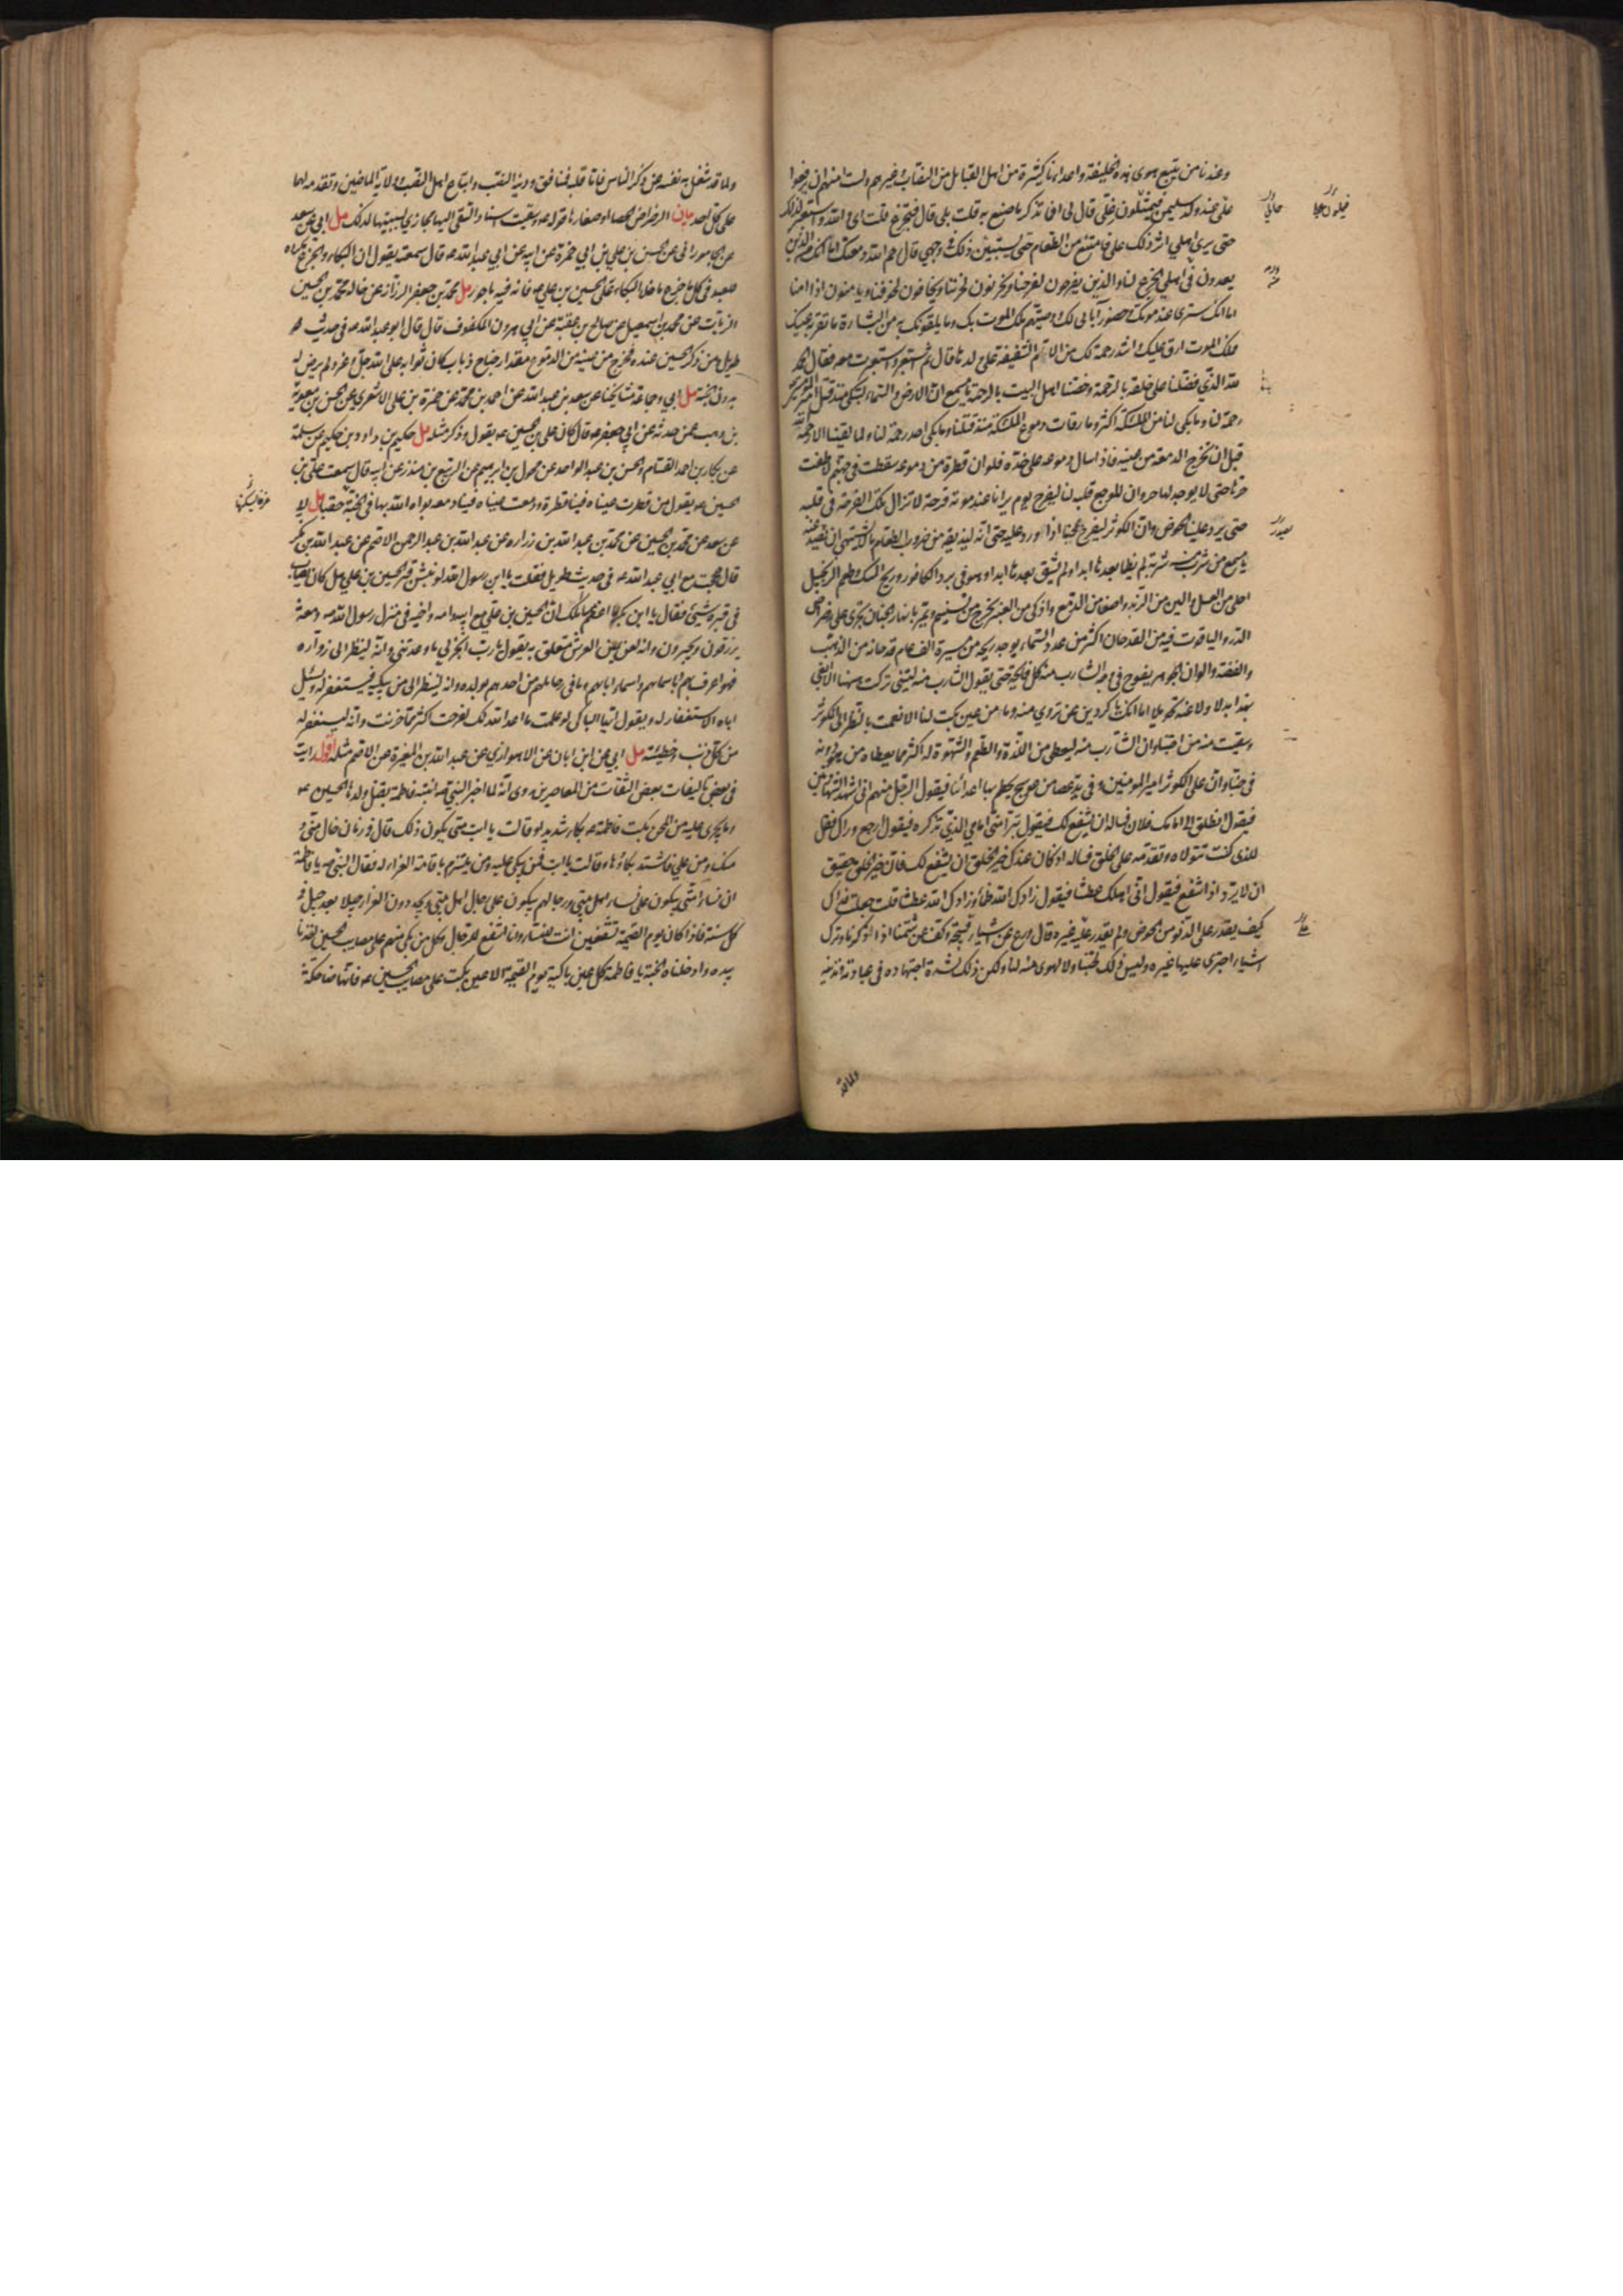 وعندنا من يتبع هوى هذه الخليفة واعداءنا كثيرة من اهل القبايل من النصاب وغيرهم ولست امنهم ان يرفعوا
على عند ولد سليمن فيمثلون على قال لى افما تذكر ما صنع به قلت بلى قال فتجزع قلت اى والله واستعبر لذلك
حتى يرى اهلي اثر ذلك على فامتنع من الطعام حتى يستبين ذلك في وجهي قال رحم الله دمعتك اما انك من الذين
يعدون في اهل الجزع لنا والذين يفرحون لفرحنا ويحزنون لحزننا ويخافون لخوفنا ويامنون اذا امنا
اما انك سترى عند موتك وحضور آبائى لك ووصيتهم ملك الموت بك وما يلقونك به من البشارة ما تقر به عينك
فملك الموت ارق عليك واشد رحمة لك من الام الشفيقة على ولدها قال ثم استعبر واستعبرت معه فقال الحمد
لله الذي فضلنا على خلقه بالرحمة وخصنا اهل البيت بالرحمة يا مسمع ان الارض والسماء لتبكي منذ قتل امير المؤمنين
رحمة لنا وما بكى لنا من الملئكة اكثر وما رقات دموع الملئكة منذ قتلنا وما بكى احد رحمة لنا ولما لقينا الا رحمه الله
قبل ان تخرج الدمعة من عينه فاذا سال دموعه على خده فلو ان قطرة من دموعه سقطت في جهنم لاطفت
حرها حتى لا يوجد لها حر وان الموجع قلبه لنا ليفرح يوم يرانا عند موته فرحة لا تزال تلك الفرحة في قلبه
حتى يرد علينا الحوض وان الكوثر ليفرح بمحبنا اذا ورد عليه حتى انه ليذيقه من ضروب الطعام ما لا يشتهي ان يصدر عنه
يا مسمع من شرب منه شربة لم يظما بعدها ابدا ولم يشق بعدها ابدا وهو في برد الكافور وريح المسك وطعم الزنجبيل
احلى من العسل والين من الزبد واصفا من الدمع واذكى من العنبر يخرج من تسنيم ويمر بانهار الجنان يجرى على رضراض
الدر والياقوت فيه من القدحان اكثر من عدد نجوم السماء يوجد ريحه من مسيرة الف عام قدحانه من الذهب
والفضة والوان الجوهر يفوح في وجه الشارب منه كل فايحة حتى يقول الشارب منه ليتني تركت ههنا لا ابغي
بهذا بدلا ولا عنه تحويلا اما انك يا كردين ممن تروي منه وما من عين بكت لنا الا نعمت بالنظر الى الكوثر
وسقيت منه من احبنا وان الشارب منه ليعطى من اللذة والطعم والشهوة له اكثر مما يعطاه من هو دونه
في حبنا وان على الكوثر امير المومنين وفي يده عصا من عوسج يحطم بها اعدائنا فيقول الرجل منهم انى اشهد الشهادتين
فيقول انطلق الى امامك فلان فساله ان يشفع لك فيقول تبرا منى امامي الذي تذكره فيقول ارجع وراك فقل
للذى كنت تتولاه وتقدمه على الخلق فساله اذ كان عندك خير الخلق ان يشفع لك فان خير الخلق حقيق
ان لا يرد اذا شفع فيقول انى اهلك عطشا فيقول زادك الله ظمأ وزادك الله عطشا قلت جعلت فداك
كيف يقدر على الدنو من الحوض ولم يقدر عليه غيره قال ورع عن اشياء قبيحة وكف عن شتمنا اذا ذكرنا وترك
اشياء اجترى عليها غيره وليس ذلك لحبنا ولا لهوى منه لنا ولكن ذلك لشدة اجتهاده في عبادته وتدينه
ولما قد
ولما قد شغل به نفسه عن ذكر الناس فاما قلبه فمنافق ودينه النصب واتباع اهل النصب وولاية الماضين وتقدمه لهما
على كل احد بيان الرضراض الحصا او صغارها قوله وسقيت اسناد السقى اليها مجازى لسببيتها لذلك مل ابى عن سعد
عن الجامورانى عن الحسن بن علي بن ابي حمزة عن ابيه عن ابي عبد الله ع قال سمعته يقول ان البكاء والجزع مكروه
للعبد في كل ما جزع ما خلا البكاء على الحسين بن علي ع فانه فيه ماجور مل محمد بن جعفر الرزاز عن خاله محمد بن الحسين
الزيات عن محمد بن اسمعيل عن صالح بن عقبة عن ابي هرون المكفوف قال قال ابو عبد الله ع في حديث
طويل من ذكر الحسين عنده فخرج من عينه من الدموع مقدار جناح ذباب كان ثوابه على الله جل وعز ولم يرض له
بدون الجنة مل ابي وجماعة مشايخنا عن سعد بن عبد الله عن احمد بن محمد عن حمزة بن على الاشعري عن الحسن بن معوية
بن وهب عمن حدثه عن ابي جعفر ع قال كان على بن الحسين ع يقول وذكر مثله مل حكيم بن داود بن حكيم عن سلمة
عن بكار بن احمد القسام والحسن بن عبد الواحد عن مخول بن ابرهيم عن الربيع بن منذر عن ابيه قال سمعت على بن
الحسين ع يقول من قطرت عيناه فينا قطرة ودمعت عيناه فينا دمعة بواه الله بها في الجنة حقبا مل ابي
عن سعد عن محمد بن الحسين عن محمد بن عبد الله بن زراره عن عبد الله بن عبد الرحمن الاصم عن عبد الله بن بكر
قال حججت مع ابي عبد الله ع في حديث طويل فقلت يا ابن رسول الله لو نبش قبر الحسين بن علي هل كان يصاب
في قبره شيئ فقال يا ابن بكر ما اعظم مسائلك ان الحسين بن علي مع ابيه وامه واخيه في منزل رسول الله ص ومعه
يرزقون ويحبرون وانه لعن يمين العرش متعلق به يقول يا رب انجز لي ما وعدتني وانه لينظر الى زواره
فهو اعرف بهم وباسمائهم واسماء ابائهم وما في رحالهم من احدهم بولده وانه لينظر الى من يبكيه فيستغفر له ويسئل
اباه الاستغفار له ويقول ايها الباكى لو علمت ما اعد الله لك لفرحت اكثر مما حزنت وانه ليستغفر له
من كل ذنب وخطيئة مل ابي عن ابن ابان عن الاهوازي عن عبد الله بن المغيرة عن الاصم مثله اقول رايت
في بعض تاليفات بعض الثقات من المعاصرين روى انه لما اخبر النبي ص ابنته فاطمة بقتل ولدها الحسين ع
وما يجرى عليه من المحن بكت فاطمة ع بكاء شديدا وقالت يا ابت متى يكون ذلك قال في زمان خال منى و
منك ومن علي فاشتد بكاؤها وقالت يا ابت فمن يبكي عليه ومن يلتزم باقامة العزاء له فقال النبي ص يا فاطمة
ان نساء امتى يبكون على نساء اهل بيتي ورجالهم يبكون على رجال اهل بيتي ويجددون العزاء جيلا بعد جيل في
كل سنة فاذا كان يوم القيمة تشفعين انت للنساء وانا اشفع للرجال وكل من بكى منهم على مصاب الحسين اخذنا
بيده وادخلناه الجنة يا فاطمة كل عين باكية يوم القيمة الا عين بكت على مصاب الحسين ع فانها ضاحكة